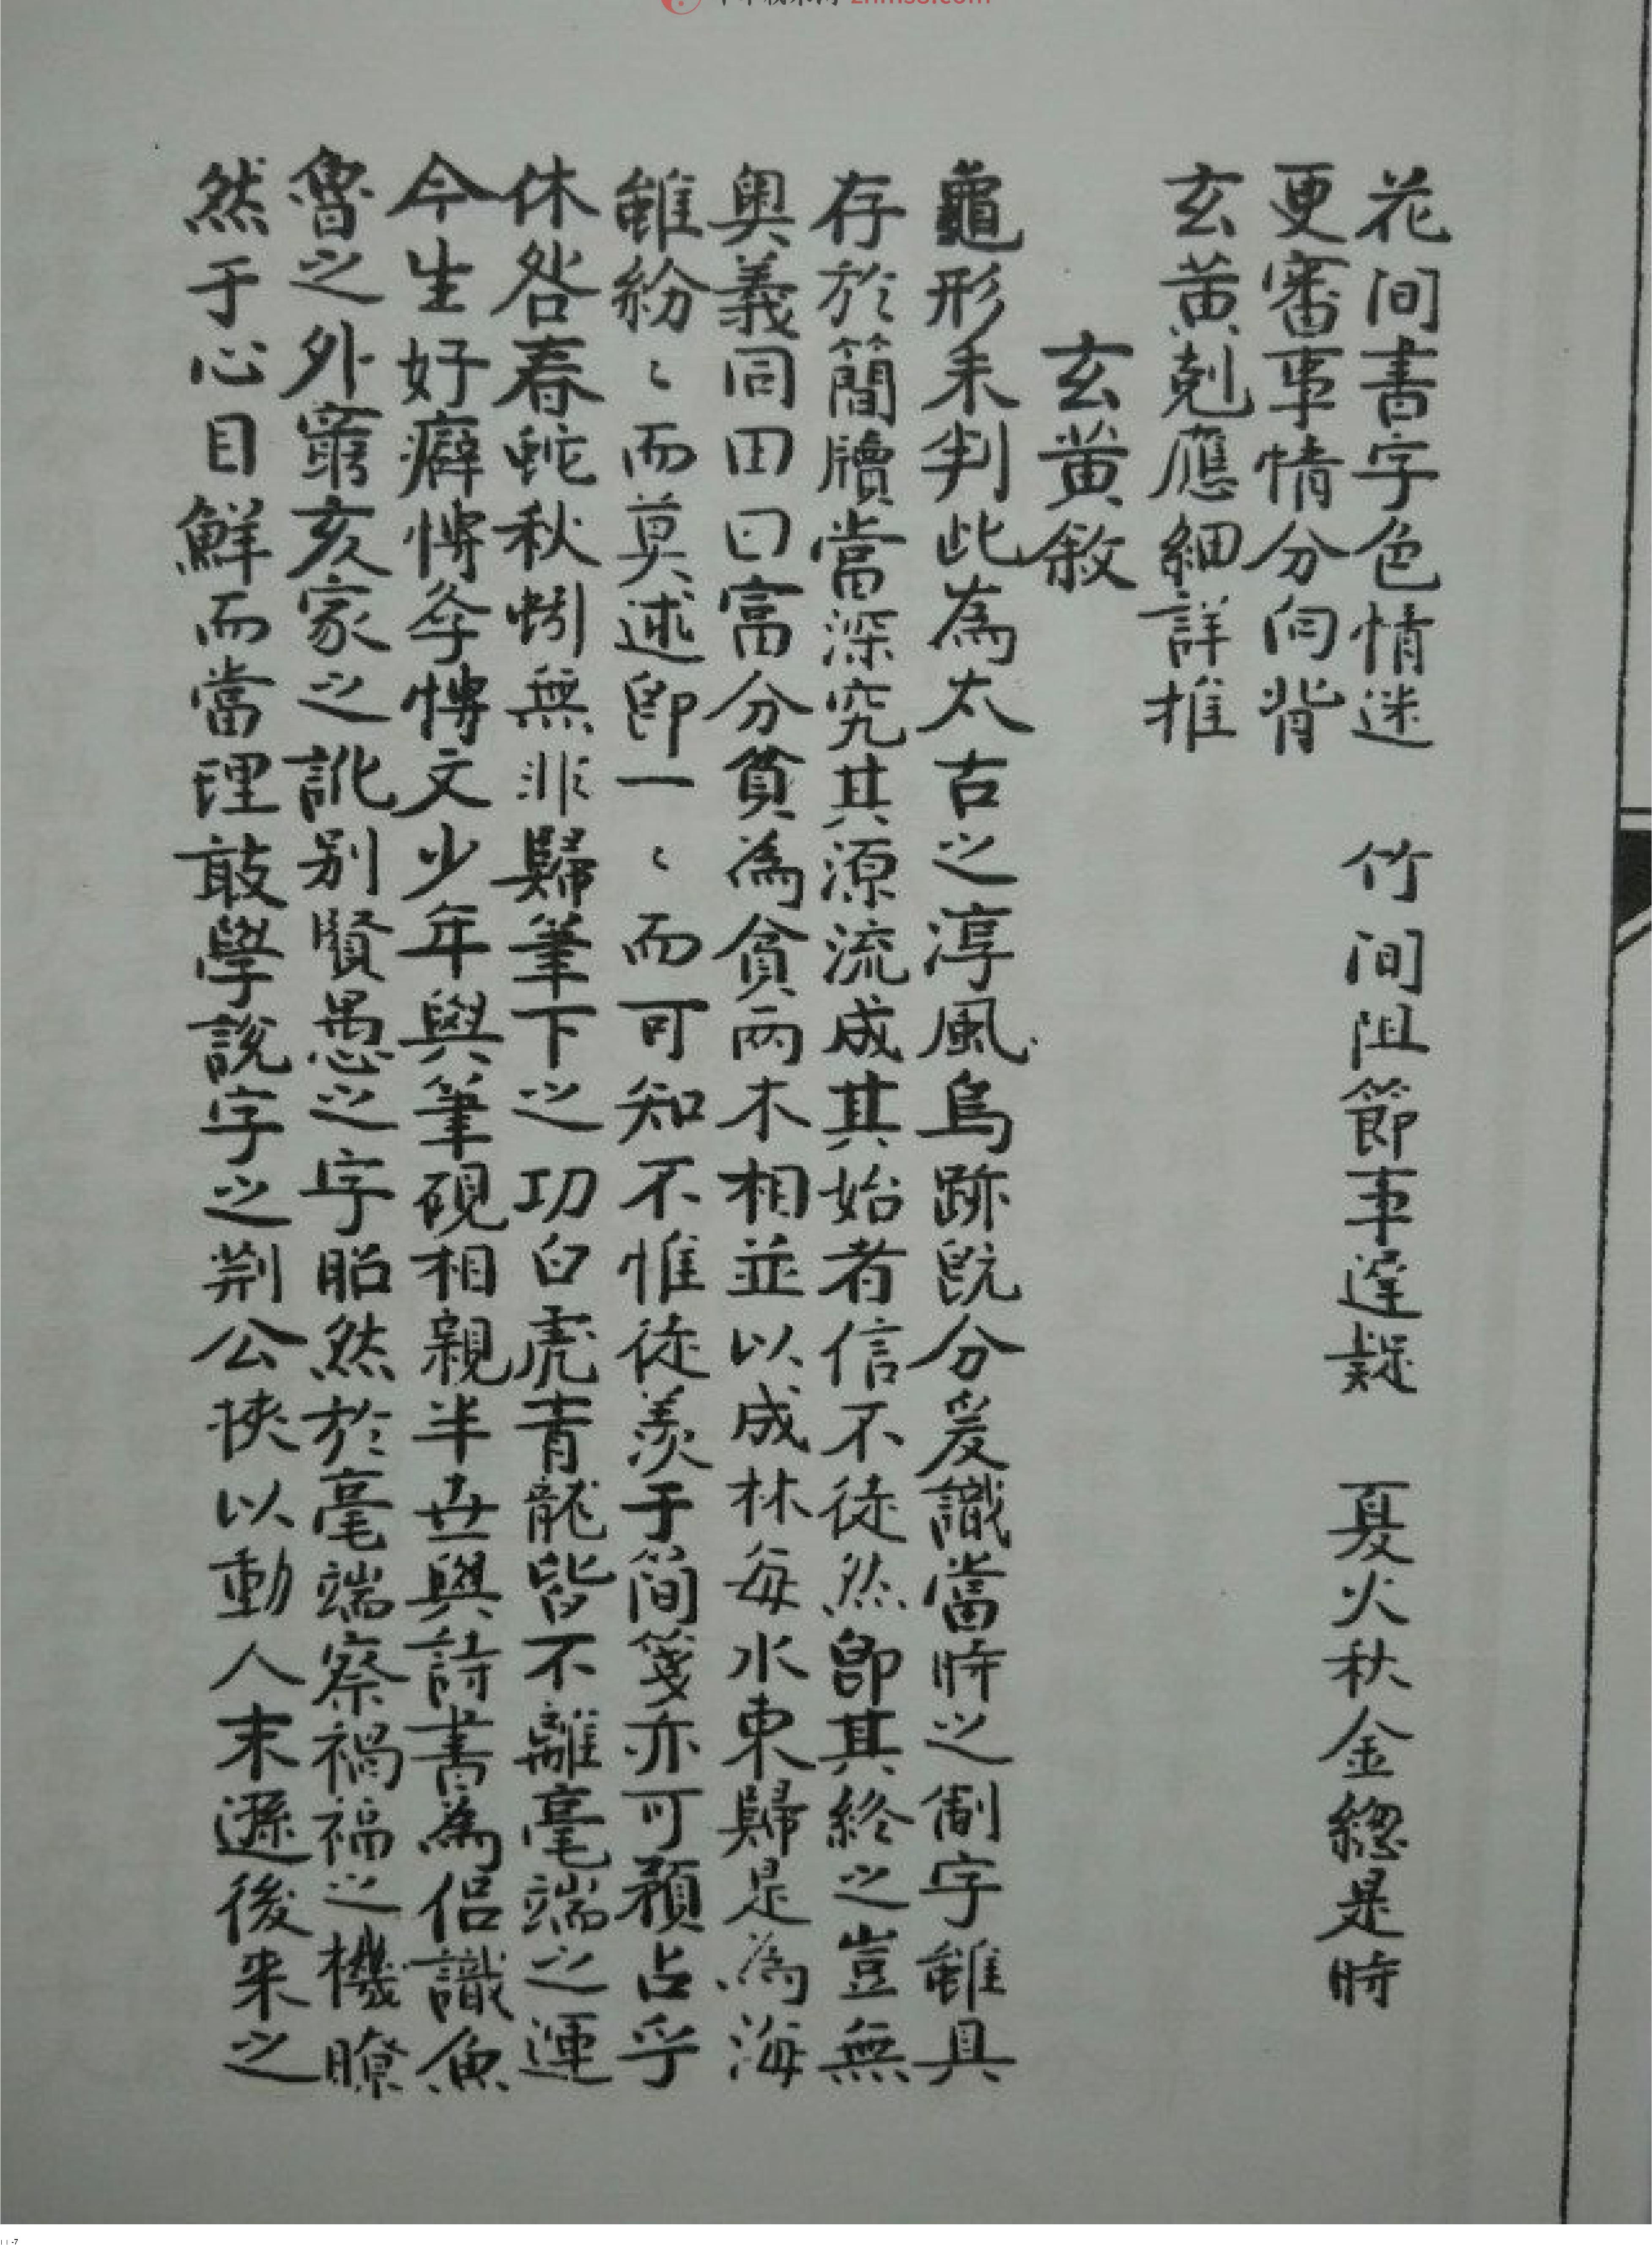 花间書字色情迷 竹间阻節事遲疑 夏火秋金總是時
更審事情分向背
玄黄剋應細詳推
玄黄敘
龜形未判此為太古之淳風鳥跡既分爰識當時之制字雖具
存於簡牘當深究其源流成其始者信不徒然即其終之豈無
奥義同田曰富分貧為貧兩木相並以成林每水東歸是為海
雖紛〻而莫述即一〻而可知不惟徒羨于简箋亦可預占乎
休咎春蛇秋蚓無非歸筆下之功白虎青龍皆不離毫端之運
今生好癖博參博文少年與筆硯相親半世與詩書為侣識魚
魯之外窮亥家之訛别賢愚之字昭然於毫端察禍福之機瞭
然于心目鮮而當理敢學說字之荆公挾以動人末遜後来之